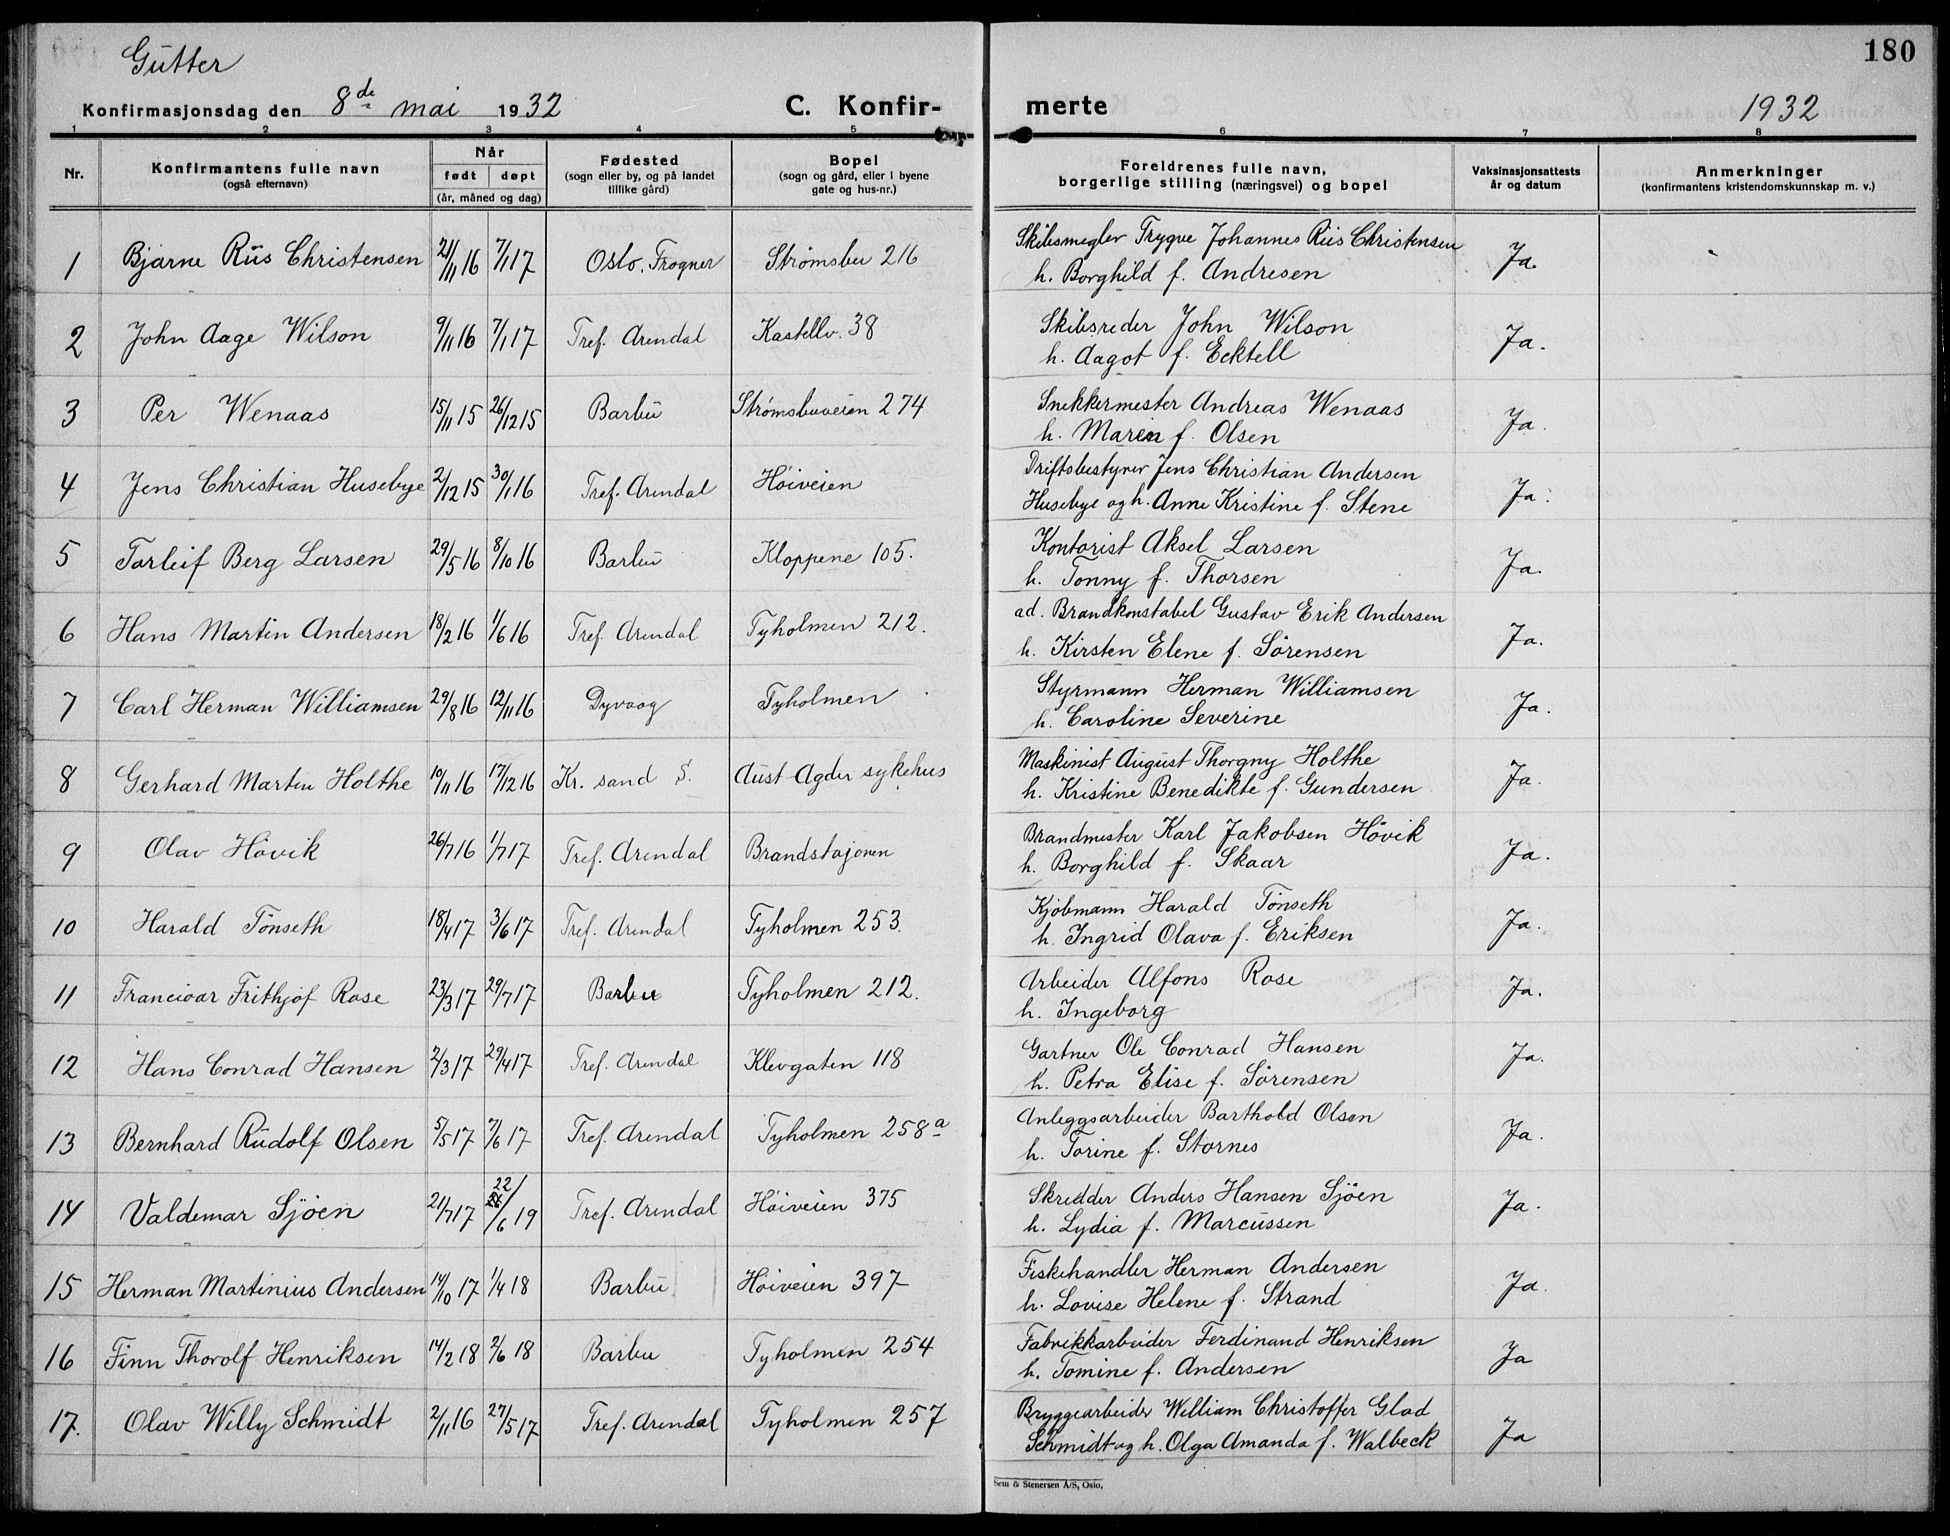 Gutter
Konfirmasjonsdag den 8de mai 1932 C. Konfir-
merte 1932 180
1 2 3 4 5 6 7 8
Nr. Konfirmantens fulle navn (også efternavn) Når født døpt (år, måned og dag) Fødested (sogn eller by, og på landet tillike gård) Bopel (sogn og gård, eller i byene gate og hus-nr.) Foreldrenes fulle navn, borgerlige stilling (næringsvei) og bopel Vaksinasjonsattests år og datum Anmerkninger (konfirmantens kristendomskunnskap m. v.)
1 Bjarne Riis Christensen 21/11 16 7/1 17 Oslo, Frogner Strømsbu 216 Skibsmegler Trygve Johannes Riis Christensen Ja.
h. Borghild f. Andresen
2 John Aage Wilson 9/11 16 7/1 17 Tref. Arendal Kastellv. 38 Skibsreder John Wilson Ja.
h. Aagot f. Ecktell
3 Per Wenaas 15/11 15 26/12 15 Barbu Strømsbuveien 274 Snekkermester Andreas Wenaas Ja.
h. Maren f. Olsen
4 Jens Christian Husebye 2/12 15 30/1 16 Tref. Arendal Høiveien Driftsbestyrer Jens Christian Andersen Ja.
Husebye og h. Anne Kristine f. Stene
5 Torleif Berg Larsen 29/5 16 8/10 16 Barbu Kloppene 105. Kontorist Aksel Larsen Ja.
h. Tonny f. Thorsen
6 Hans Martin Andersen 18/2 16 1/6 16 Tref. Arendal Tyholmen 212. ad. Brandkonstabel Gustav Erik Andersen Ja.
h. Kirsten Elene f. Sörensen
7 Carl Herman Williamsen 29/8 16 12/11 16 Dyvaag Tyholmen Styrmann Herman Williamsen Ja.
h. Caroline Severine
8 Gerhard Martin Holthe 10/11 16 17/12 16 Kr. sand S. Aust-Agder sykehus Maskinist August Thorgny Holthe Ja.
h. Kristine Benedikte f. Gundersen
9 Olav Hövik 26/7 16 1/7 17 Tref. Arendal Brandstasjonen Brandmester Karl Jakobsen Hövik Ja.
h. Borghild f. Skaar
10 Harald Tönseth 18/4 17 3/6 17 Tref. Arendal Tyholmen 253. Kjöbmann Harald Tönseth Ja.
h. Ingrid Olava f. Eriksen
11 Francioar Frithjof Rose 23/3 17 29/7 17 Barbu Tyholmen 212. Arbeider Alfons Rose Ja.
h. Ingeborg
12 Hans Conrad Hansen 2/3 17 29/4 17 Tref. Arendal Klevgaten 118 Gartner Ole Conrad Hansen Ja.
h. Petra Elise f. Sörensen
13 Bernhard Rudolf Olsen 5/5 17 7/6 17 Tref. Arendal Tyholmen 258a Anleggsarbeider Barthold Olsen Ja.
h. Torine f. Stornes
14 Valdemar Sjöen 21/7 17 22/6 19 Tref. Arendal Høiveien 375 Skredder Anders Hansen Sjöen Ja.
h. Lydia f. Marcussen
15 Herman Martinius Andersen 14/10 17 1/4 18 Barbu Høiveien 397 Fiskehandler Herman Andersen Ja.
h. Lovise Helene f. Strand
16 Finn Thorolf Henriksen 14/2 18 2/6 18 Barbu Tyholmen 254 Fabrikkarbeider Ferdinand Henriksen Ja
h. Tomine f. Andersen
17. Olav Willy Schmidt 2/11 16 27/5 17 Tref. Arendal Tyholmen 257 Bryggearbeider William Christoffer Glad Ja
Schmidt og h. Olga Amanda f. Walbeck
Sem & Stenersen A/S, Oslo.